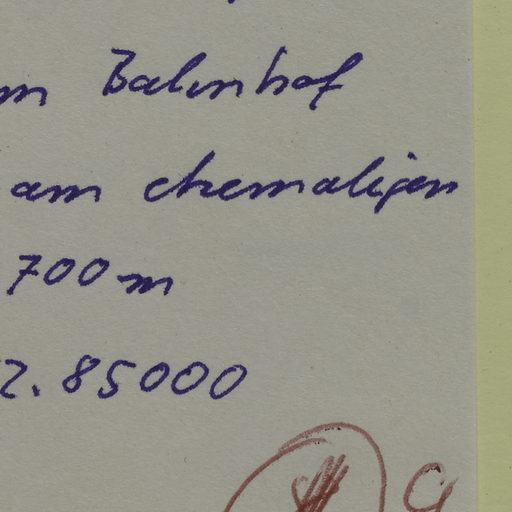 Bahnhof
am ehemaligen
700 m
2. 85000